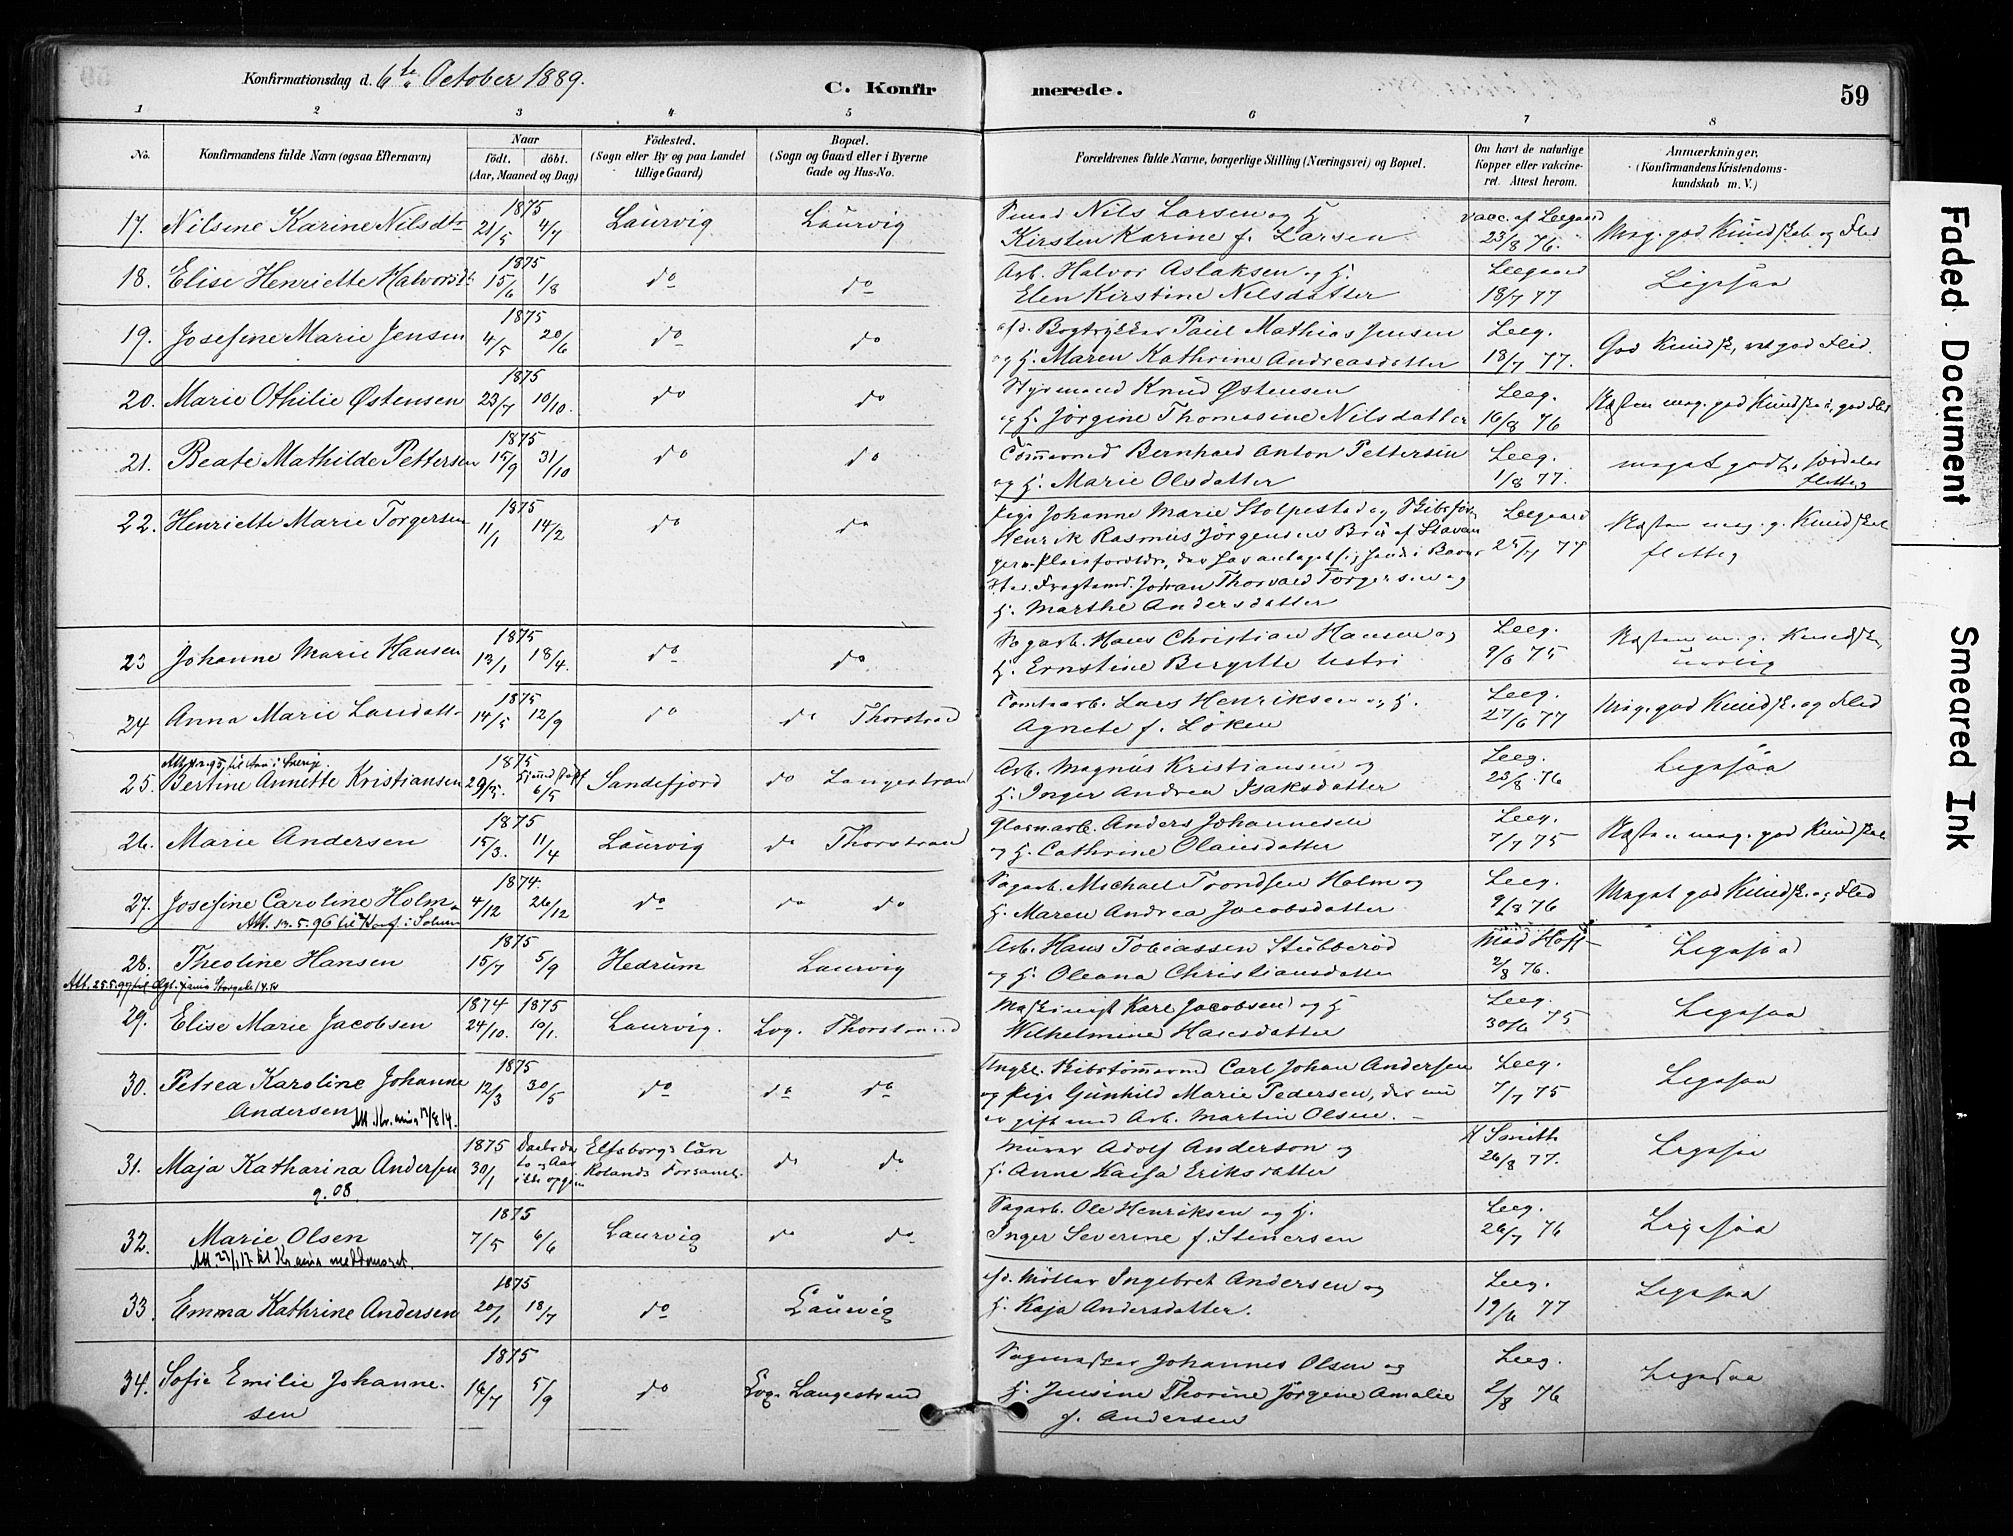 Konfirmationsdag d. 6te October 1889.
C. Konfirmerede.
59
1 2 3 4 5 6 7 8
No. Konfirmandens fulde Navn (ogsaa Efternavn) Naar födt. döbt. (Aar, Maaned og Dag) Födested. (Sogn eller By og paa Landet tillige Gaard) Bopæl. (Sogn og Gaard eller i Byerne Gade og Hus-No. Forældrenes fulde Navne, borgerlige Stilling (Næringsvei) og Bopæl. Om havt de naturlige Kopper eller vakcineret. Attest herom. Anmærkninger, (Konfirmandens Kristendomskundskab m. V.)
17. Nilsine Karine Nilsdtr 1875 21/5 4/7 Laurvig Laurvig Smed Nils Larsen og H. Kirsten Karine f. Larsen vacc. af Leegaard 23/8 76. Meg. god Kundskab og Flid
18. Elise Henriette Halvorsdt. 1875 15/6 1/8 do do Arb. Halvor Aslaksen og H. Elen Kirstine Nilsdatter Leegaard 18/7 77 Ligesaa
19. Josefine Marie Jensen 1875 4/5 20/6 do do afd. Bogtrykker Paul Mathias Jensen og H. Maren Kathrine Andreasdatter Leeg. 18/7 77. God Kundsk., god Flid.
20. Marie Othilie Østensen 1875 23/7 10/10. do do Styrmand Knud Østensen og H. Jörgine Thomasine Nilsdatter Leeg. 16/8 76 Næsten meg. god Kundskab, god Flid
21. Beate Mathilde Pettersen 1875 15/9 31/10 do do Tömmermd Bernhard Anton Pettersen og H. Marie Olsdatter Leeg. 1/8 77. meget godt, flittig
22. Henriette Marie Torgersen 1875 11/1 14/2 do do Pige Johanne Marie Stolpestad og Skibsför. Henrik Rasmus Jörgensen af Stavanger. Pleieforældre, der har antaget sig hende i Barns Sted Fragtemd. Johan Thorvald Torgersen og H. Marthe Andersdatter Leegaard 25/7 77 Næsten meg. g. Kundskab flittig
23 Johanne Marie Hansen 1875 13/1 18/4. do do Sagarb. Hans Christian Hansen og H. Ernstine Birgitte Leeg. 9/6 75 Næsten m. g. Kundsk.
24 Anna Marie Larsdatt. 1875 14/5 12/9 do do Thorstrand Tomtearb. Lars Henriksen og H. Agnete f. Löken Leeg. 27/6 77 Meg. god Kundsk. og Flid
25. Bertine Annette Kristiansen 1875 29/3. 6/5 Sandefjord do Langestrand Arb. Magnus Kristiansen og H. Inger Andrea Isaksdatter Leeg. 23/8 76 Ligesaa
26. Marie Andersen 1875 15/3. 11/4 Laurvig do Thorstrand Glasarb. Anders Johannesen og H. Cathrine Olausdatter Leeg. 7/7 75 Næsten meg. god Kundskab
27. Josefine Caroline Holm 1874. 4/12 26/12 do do do Sagarb. Michael Trondsen Holm og H. Maren Andrea Jacobsdatter Leeg. 9/8 76 Meget god Kundsk. og Flid
Att. 13.5.96 til Konf. i Solum
28. Theoline Hansen 1875 15/7 5/9 Hedrum Laurvig Arb. Hans Tobiassen Stubberöd og H. Oleana Christiansdatter Mad Hoff 2/8 76. Ligesaa
29. Elise Marie Jacobsen 1874 24/10. 1875 10/1. Laurvig. Lvg. Thorstrand Maskinist Karl Jacobsen og H. Wilhelmine Hansdatter Leeg. 30/6 75 Ligesaa
30. Petrea Karoline Johanne Andersen 1875 12/3 30/5 do do do Ungk. Skibstömmermd Carl Johan Andersen og Pige Gunhild Marie Pedersen, der nu er gift med Arb. Martin Olsen. Leeg. 7/7 75 Ligesaa
31. Maja Katharina Andersen 1875 30/1 Daabsdato og Aar ikke opgivn Elfsborgs län Rolands Forsaml. do do Murer Adolf Anderson og H. Anne Kaisa Eriksdatter Smith 26/8 77. Ligesaa
g. 08.
32. Marie Olsen 1875 7/5 6/6 Laurvig do do Sagarb. Ole Henriksen og H. Inger Severine f. Stenersen Leeg. 26/7 76 Ligesaa
33. Emma Kathrine Andersen 1875 20/1 18/7 do Laurvig afd. Möller Ingebret Andersen og H. Kaja Andersdatter. Leeg. 19/6 77 Ligesaa
34. Sofie Emilie Johannesen 1875 14/7 5/9 do Lvg. Langestrand Sagmester Johannes Olsen og H. Jensine Thorine Jörgine Amalie f. Andersen Leeg. 2/8 76 Ligesaa
Faded Document
Smeared Ink